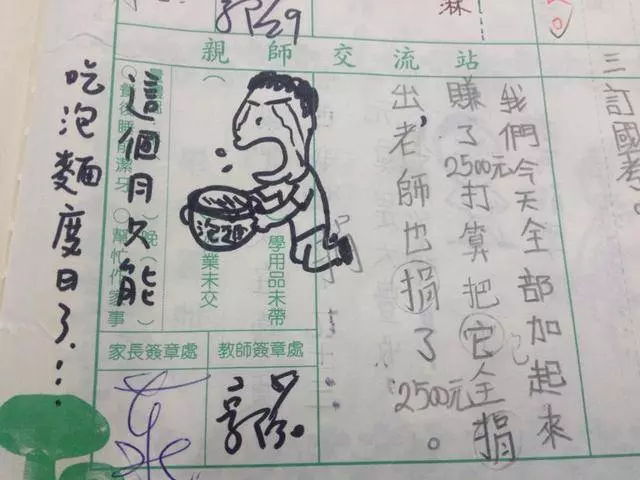 森
親師交流站
三訂國考。
我們今天全部加起來
賺了2500元打算把它全捐
出老師也捐了2500元。
泡麵
學用品未帶
業未交
這個月只能
吃泡麵度日了...
餐後睡前潔牙
晚
幫忙作家事
家長簽章處
教師簽章處
郭